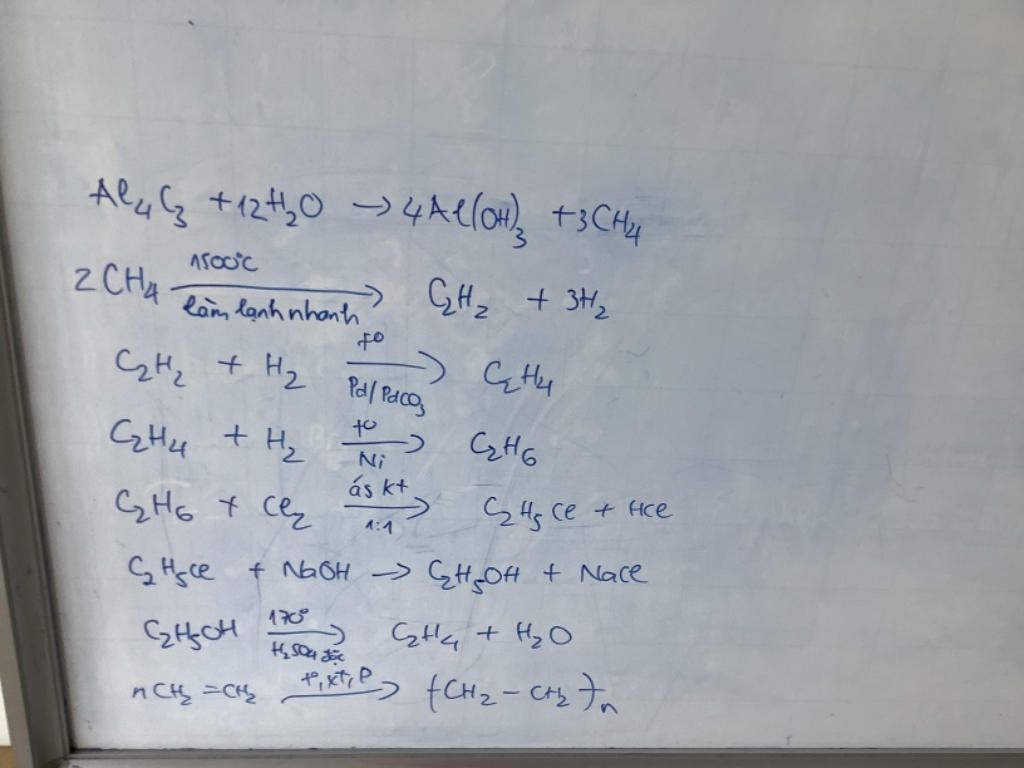 Al₄C₃ + 12H₂O → 4Al(OH)₃ + 3CH₄
2CH₄ 1500°C → làm lạnh nhanh C₂H₂ + 3H₂
C₂H₂ + H₂ t° → Pd/PdCO₃ C₂H₄
C₂H₄ + H₂ t° → Ni C₂H₆
C₂H₆ + Cl₂ ás kt → 1:1 C₂H₅Cl + HCl
C₂H₅Cl + NaOH → C₂H₅OH + NaCl
C₂H₅OH 170° → H₂SO₄ đặc C₂H₄ + H₂O
nCH₂ = CH₂ t°, xt, P → (CH₂ – CH₂)ₙ